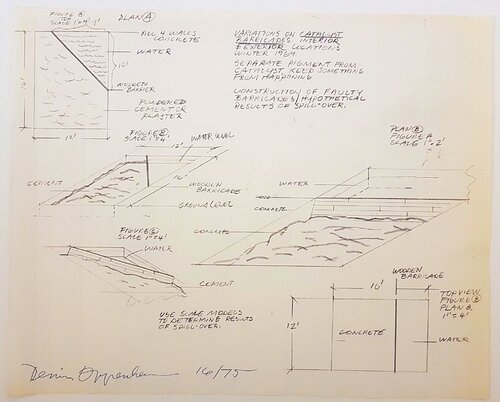 FIGURE A
SCALE 1"=4'
PLAN A
ALL 4 WALLS
CONCRETE
WATER
10'
WOODEN
BARRIER
POWDERED
CEMENT OR
PLASTER
16'
12'
VARIATIONS ON CATALYST
BARRICADES INTERIOR
& EXTERIOR LOCATIONS
WINTER 1969
SEPARATE PIGMENT FROM
CATALYST, KEEP SOMETHING
FROM HAPPENING
CONSTRUCTION OF FAULTY
BARRICADES/HYPOTHETICAL
RESULTS OF SPILL-OVER.
FIGURE B
SCALE 1"=4'
12'
WATER LEVEL
16'
CEMENT
WOODEN
BARRICADE
GROUND LEVEL
PLAN B
FIGURE A
SCALE 1"=2'
WATER
WOOD
CONCRETE
CONCRETE
FIGURE C
SCALE 1"=4'
WATER
CEMENT
USE SCALE MODELS
TO DETERMINE RESULTS
OF SPILL-OVER.
WOODEN
BARRICADE
16'
TOP VIEW
FIGURE B
PLAN B.
1"=4'
12'
CONCRETE
WATER
Dennis Oppenheim 16/75